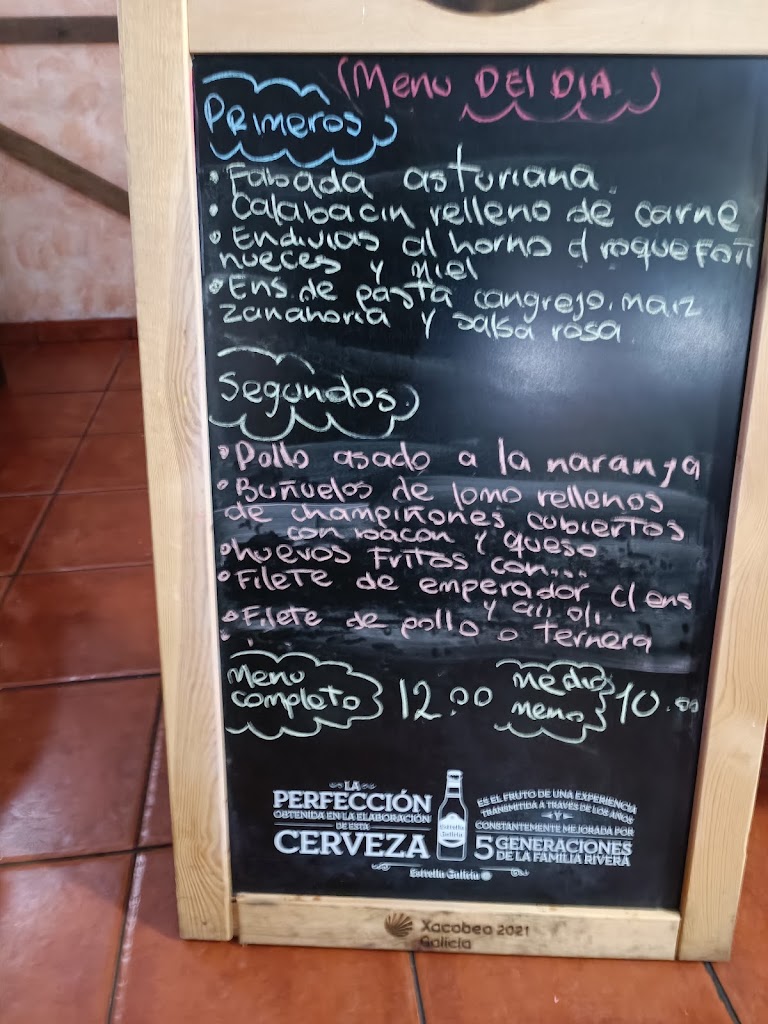 (Menu DEL DIA)
Primeros
• Fabada asturiana.
• Calabacin relleno de carne
• Endivias al horno c/ roquefort
nueces y miel
• Ens. de pasta cangrejo, maiz
zanahoria y salsa rosa
Segundos
• Pollo asado a la naranja
• Buñuelos de lomo rellenos
de champiñones cubiertos
con bacon y queso
• huevos fritos con...
• Filete de emperador c/ ens
y ali oli
• Filete de pollo o ternera
Menu
completo 12.00
medio
menu 10.00
LA
PERFECCIÓN
OBTENIDA EN LA ELABORACIÓN
DE ESTA
CERVEZA
Estrella Galicia
ES EL FRUTO DE UNA EXPERIENCIA
TRANSMITIDA A TRAVÉS DE LOS AÑOS
Y
CONSTANTEMENTE MEJORADA POR
5 GENERACIONES
DE LA FAMILIA RIVERA
Estrella Galicia
Xacobeo 2021
Galicia